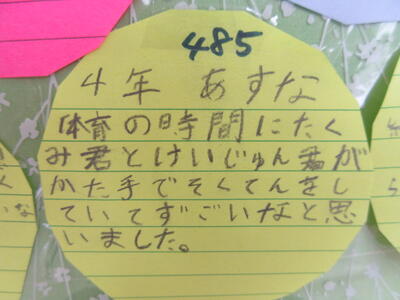 485
4年 あすな
体育の時間にたく
み君とけいじゅん君が
かた手でそくてんをし
ていてすごいなと思
いました。